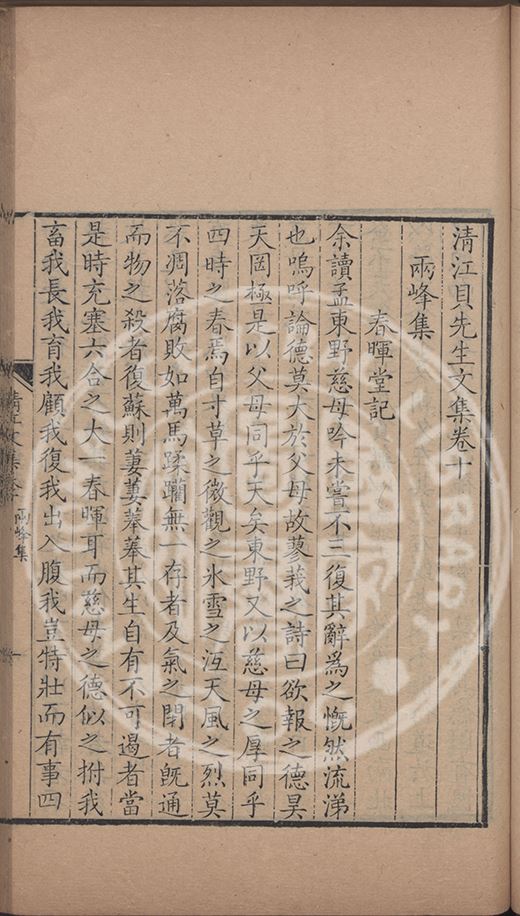 清江貝先生文集卷十
兩峰集
春暉堂記
余讀孟東野慈母吟未嘗不三復其辭爲之慨然流涕
也嗚呼論德莫大於父母故蓼莪之詩曰欲報之德昊
天罔極是以父母同乎天矣東野又以慈母之厚同乎
四時之春焉自寸草之微觀之氷雪之沍天風之烈莫
不凋落腐敗如萬馬蹂躪無一存者及氣之閉者旣通
而物之殺者復蘇則萋萋菶菶其生自有不可遏者當
是時充塞六合之大一春暉耳而慈母之德似之拊我
畜我長我育我顧我復我出入腹我豈特壯而有事四
清江文集卷十 兩峰集 一